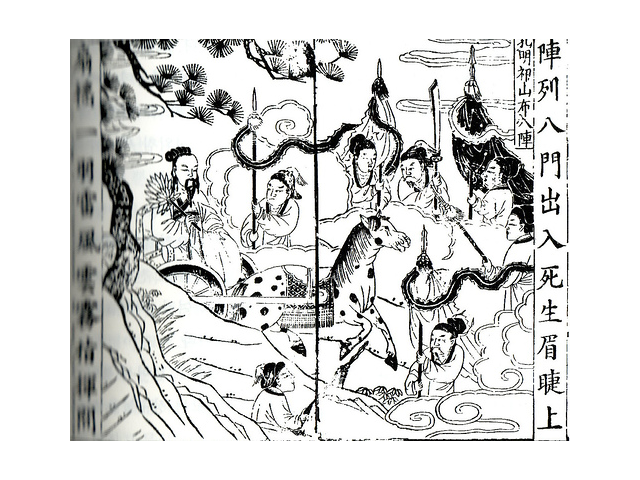 陣列八門出入死生眉睫上
孔明祁山布八陣
扇搖一 雷風雲霧指揮間